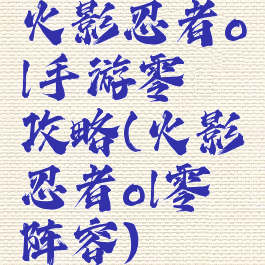 火影忍者o
l手游零
攻略(火影
忍者ol零
阵容)